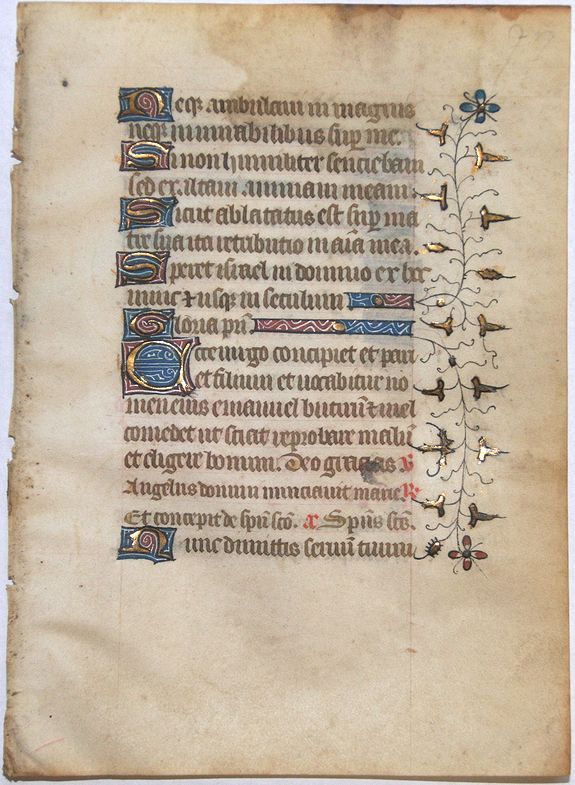 Neq; ambulaui in magnis
neq; in mirabilibus sup me.
Si non humiliter sentiebam
sed exaltaui animam meam.
Sicut ablatatus est sup ma
tre sua ita retributio in aīa mea.
Speret israel in domino ex hoc
nunc &usq; in seculum
Gloria pri
Ecce uirgo concipiet et pari
et filium et uocabitur no
men eius emanuel butirū & mel
comedet ut sciat reprobare malū
et eligere bonum. Deo gracias v
Angelus domini nunciauit marie R
Et concepit de spū scō. a Spūs scō.
Nunc dimittis seruū tuum